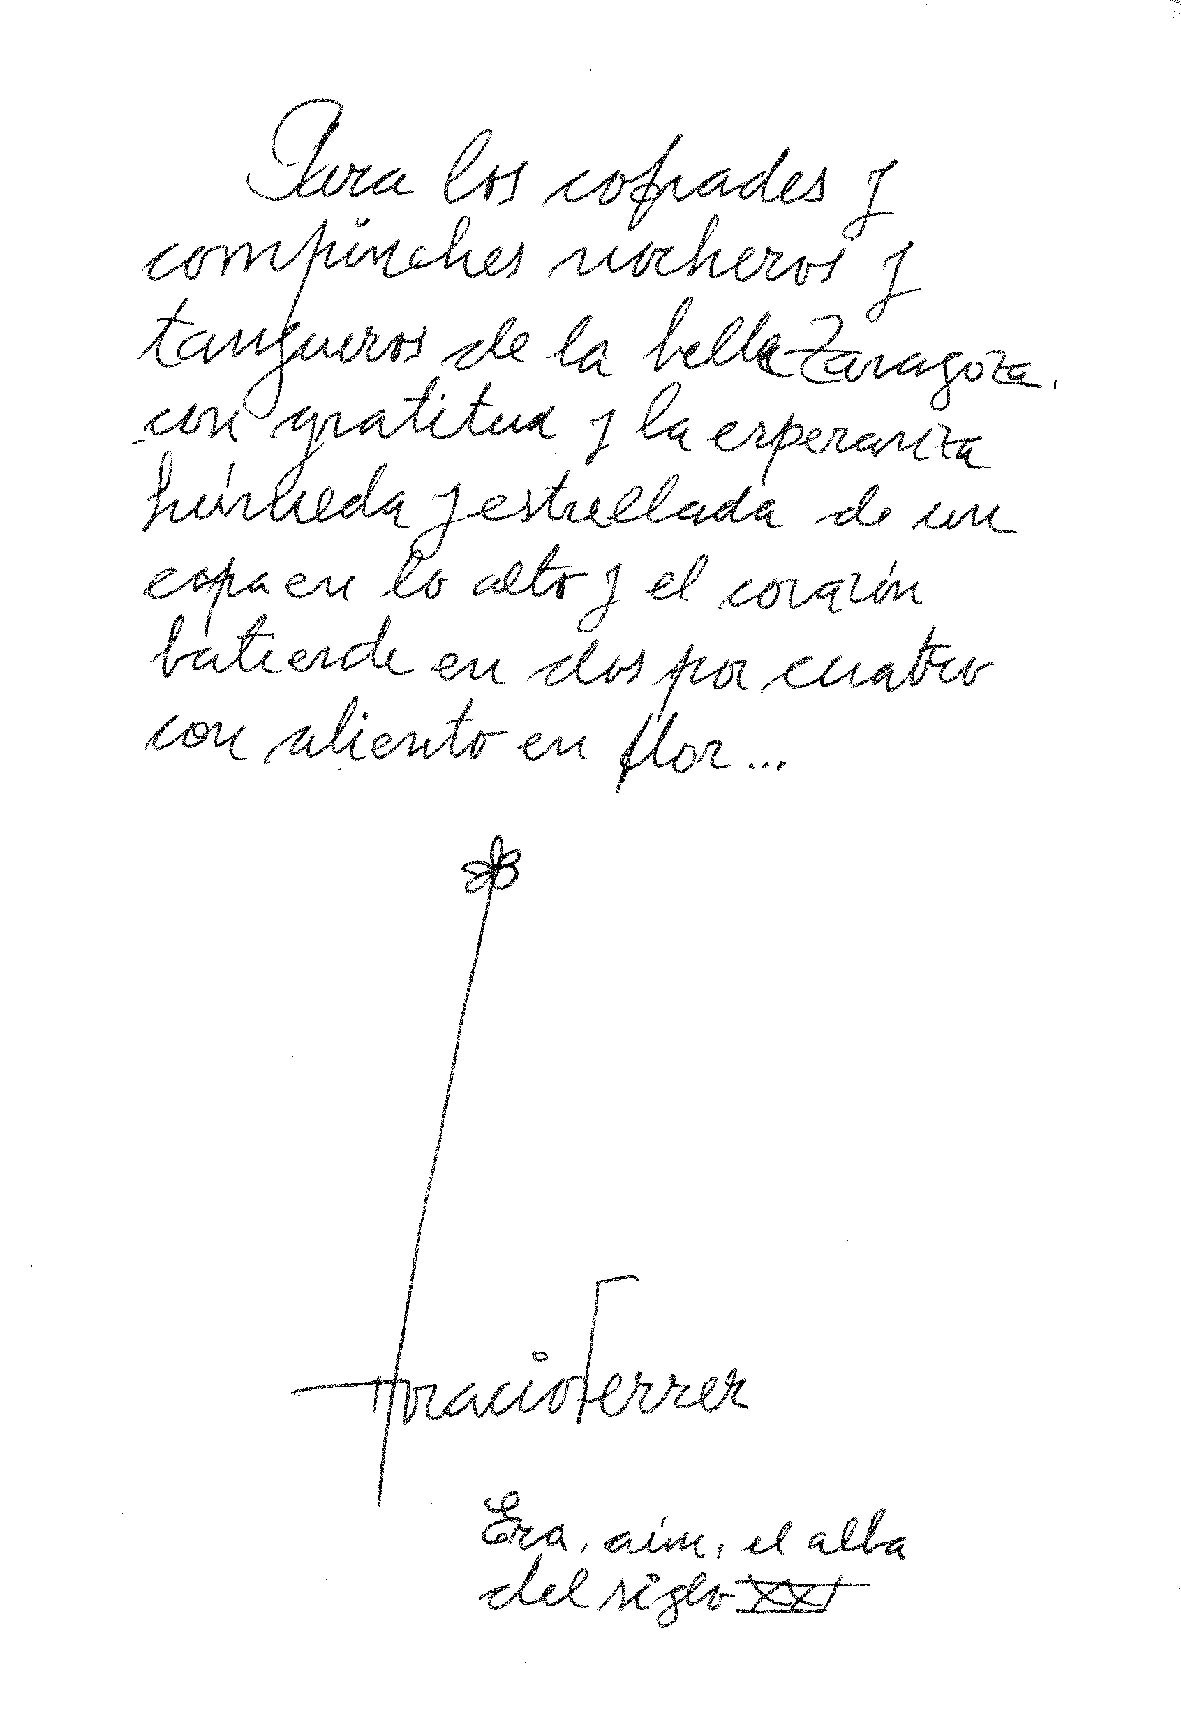 Para los cofrades y
compinches nocheros y
tangueros de la bella Zaragoza,
con gratitud y la esperanza
húmeda y estrellada de un
copa en lo alto y el corazón
batiendo en dos por cuatro
con aliento en flor...
Horacio Ferrer
Era, aún, el alba
del siglo XXI